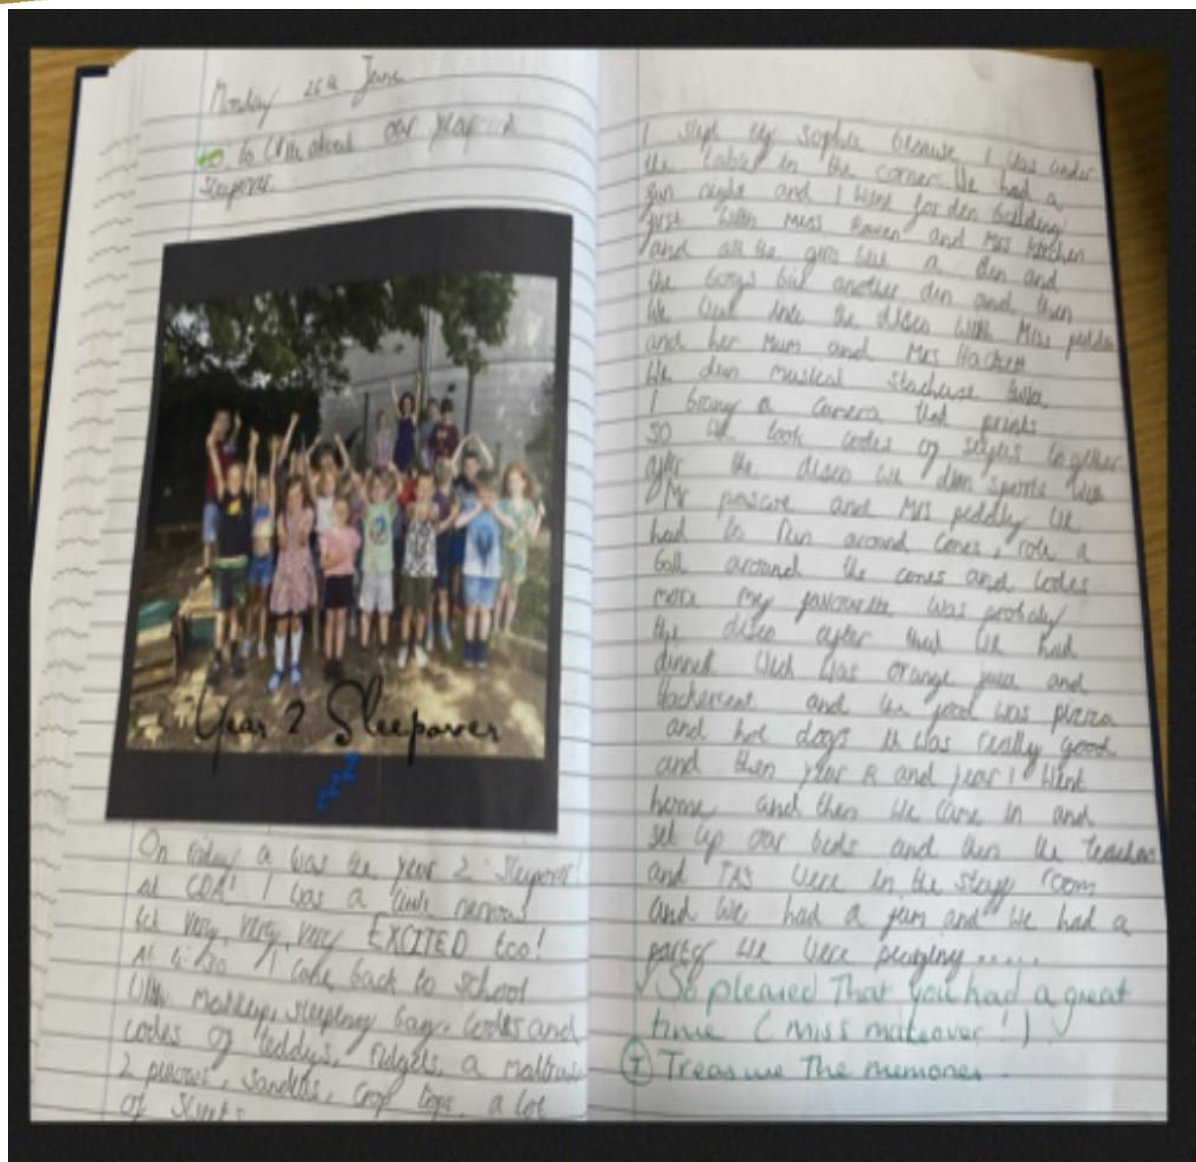 Monday 26th June
to write about our year 2
sleepover.
Year 2 Sleepover
zzz
On friday a was the year 2 sleepover!
At CDA! I was a little nervous
but very, very, very EXCITED too!
At 4:30 I came back to school
with makeup, sleeping bag, lodes and
lodes of teddys, fidgets, a
2 pillows, sandels, crop tops, a lot
of sweets
I slept by Sophie because I was under
the table in the corner. We had a
fun night and I went for den building
first with Miss and Mrs Kitchen
and all the girls a den and
the boys bilt another den and then
We went into the disco with Miss
and her Mum and Mrs Hackett
We dun musical
I bring a camera that prints
so we took lodes of selfies together
after the disco we dun sports with
Mr pascoe and Mrs peddly We
had to run around cones, role a
ball around the cones and lodes
more my favourite was probaly
the disco after that we had
dinner wich was orange juce and
and the food was pizza
and hot dogs it was really good
and then year R and year 1 went
home, and then we came in and
set up our beds and then the teachers
and TAS were in the staff room
and we had a jam and we had a
we were .....
So pleased That you had a great
time (miss makeover!)
T Treasure The memories